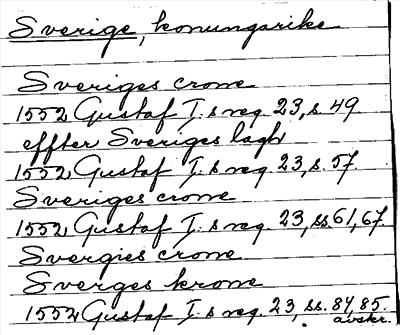 Sverige, konungarike
Sveriges crone
1552 Gustaf I:s reg. 23, s. 49
effter Sveriges lagh
1552 Gustaf I:s reg. 23, s. 57.
Sveriges crone
1552 Gustaf I:s reg. 23, ss. 61, 67.
Svergies crone
Sverges krone
1552 Gustaf I:s reg. 23, ss. 84, 85.
avskr.